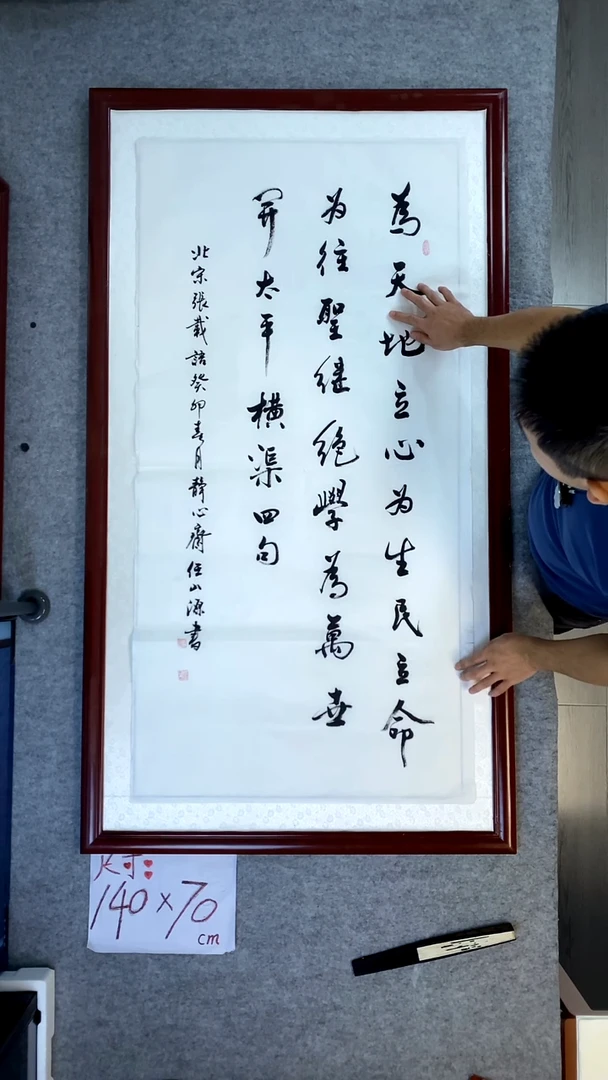 為天地立心为生民立命
为往聖继绝學為萬世
开太平橫渠四句
北宋張載語癸卯春月靜心齋任山源書
尺寸:
140×70
cm